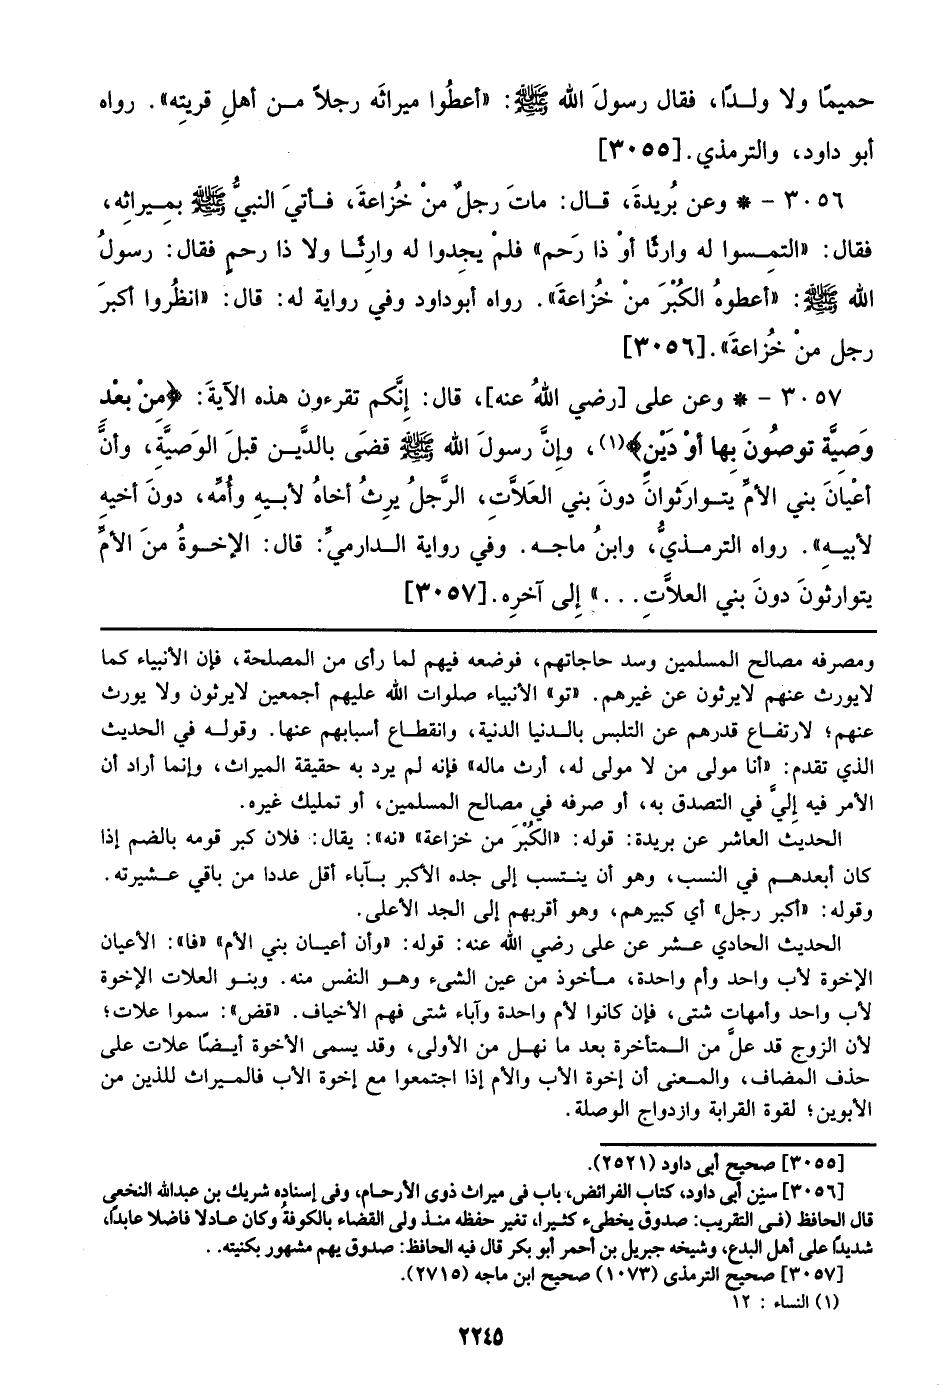 حميمًا ولا ولـدًا، فقال رسولَ الله ﷺ: «أعطُوا ميراثَه رجلاً مـن أهلِ قريتِه». رواه
أبو داود، والترمذي. [٣٠٥٥]
٣٠٥٦ – * وعن بُريدةَ، قـال: ماتَ رجلٌ منْ خُزاعةَ، فـأتيَ النبيُّ ﷺ بمـيراثِه،
فقال: «التمِـسوا له وارثًا أوْ ذا رَحم» فلمْ يجِدوا له وارثًـا ولا ذا رحمٍ فقال: رسولُ
الله ﷺ: «أعطوهُ الكُبْرَ منْ خُزاعةَ». رواه أبوداود وفي رواية له: قال: «انظُروا أكبرَ
رجل منْ خُزاعةَ». [٣٠٥٦]
٣٠٥٧ – * وعن على [رضي اللهُ عنه]، قال: إنَّكم تقرءون هذه الآيةَ: ﴿منْ بعْد
وَصيَّة توصُونَ بِها أوْ دَيْنٍ﴾(١)، وإنَّ رسولَ الله ﷺ قضَى بالدَّيـن قبلَ الوَصيَّة، وأنَّ
أعْيانَ بني الأمِّ يتـوارثوانَ دونَ بني العَلاَّتِ، الرَّجلُ يرِثُ أخاهُ لأبـيهِ وأُمِّه، دونَ أخيهِ
لأبيـهِ». رواه الترمـذيُّ، وابنُ ماجـه. وفي رواية الـدارميِّ: قال: الإخـوةُ منَ الأمِّ
يتوارثونَ دونَ بني العلاَّتِ...» إلى آخرِه. [٣٠٥٧]
ومصرفه مصالح المسلمين وسد حاجاتهم، فوضعه فيهم لما رأى من المصلحة، فإن الأنبياء كما
لايورث عنهم لايرثون عن غيرهم. «تو» الأنبياء صلوات الله عليهم أجمعين لايرثون ولا يورث
عنهم؛ لارتفـاع قدرهم عن التلبس بالـدنيا الدنية، وانقطـاع أسبابهم عنها. وقولـه في الحديث
الذي تقدم: «أنا مولى من لا مولى له، أرث ماله» فإنه لم يرد به حقيقة الميراث، وإنما أراد أن
الأمر فيه إليَّ في التصدق به، أو صرفه في مصالح المسلمين، أو تمليك غيره.
الحديث العاشر عن بريدة: قوله: «الكُبْرَ من خزاعة» «نه»: يقال: فلان كبر قومه بالضم إذا
كان أبعدهـم في النسب، وهو أن ينـتسب إلى جده الأكبر بـآباء أقل عددا من باقي عـشيرته.
وقوله: «أكبر رجل» أي كبيرهم، وهو أقربهم إلى الجد الأعلى.
الحديث الحادي عـشر عن على رضي الله عنه: قوله: «وأن أعيـان بني الأم» «فا»: الأعيان
الإخوة لأب واحد وأم واحدة، مـأخوذ من عين الشىء وهـو النفس منه. وبنـو العلات الإخوة
لأب واحد وأمهات شتى، فإن كانوا لأم واحدة وآباء شتى فهم الأخياف. «قض»: سموا علات؛
لأن الزوج قد علَّ من المـتأخرة بعد ما نهـل من الأولى، وقد يسمى الأخوة أيـضًا علات على
حذف المضاف، والمـعنى أن إخوة الأب والأم إذا اجتمعوا مع إخوة الأب فالمـيراث للذين من
الأبوين؛ لقوة القرابة وازدواج الوصلة.
[٣٠٥٥] صحيح أبى داود (٢٥٢١).
[٣٠٥٦] سنن أبى داود، كتاب الفرائض، باب فى ميراث ذوى الأرحـام، وفى إسناده شريك بن عبدالله النخعى
قال الحافظ (فـى التقريب: صدوق يخطىء كثيرا، تغير حفظه منـذ ولى القضاء بالكوفة وكان عـادلا فاضلا عابدا،
شديدًا على أهل البدع، وشيخه جبريل بن أحمر أبو بكر قال فيه الحافظ: صدوق يهم مشهور بكنيته..
[٣٠٥٧] صحيح الترمذى (١٠٧٣) صحيح ابن ماجه (٢٧١٥).
(١) النساء : ١٢
٢٢٤٥